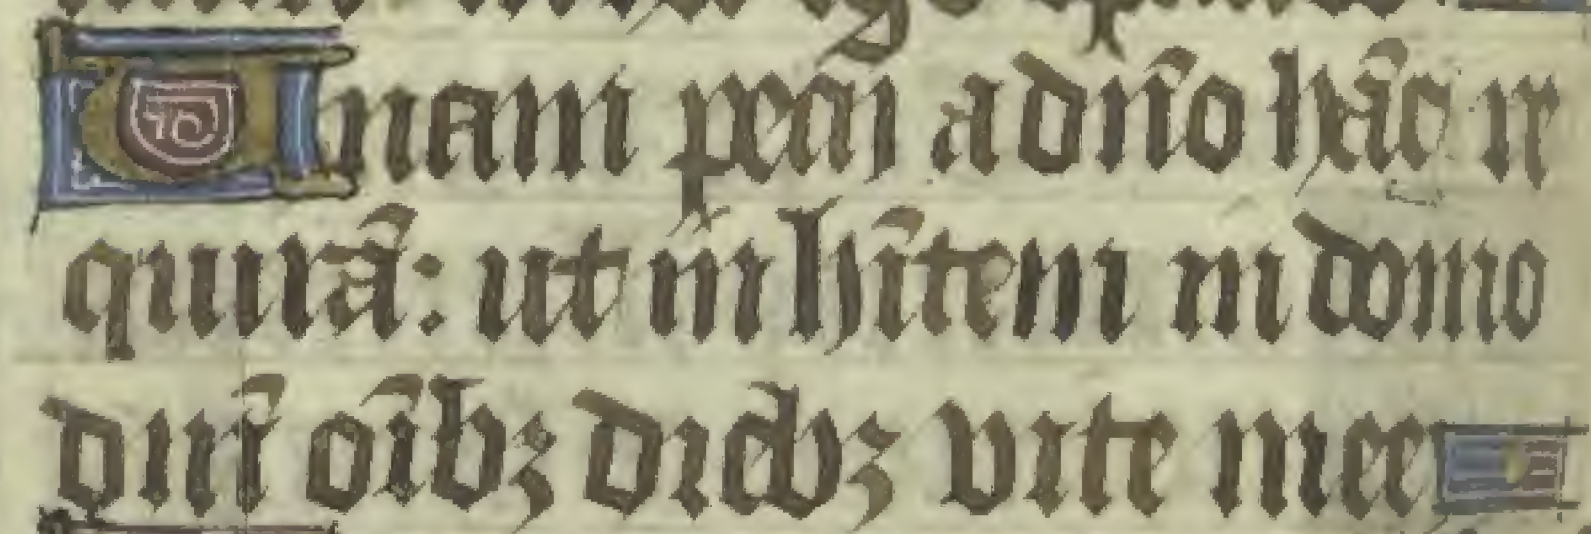 Unam pecij a dñō hāc re
quirā: ut īhītem in domo
dñī oībꝫ diebꝫ vite mee